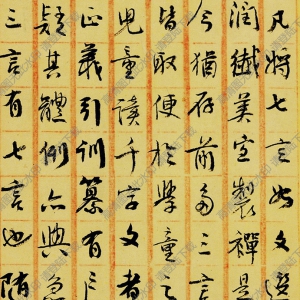 凡將七言如文選
潤纖美宜製禪是
今猶存前多三言
皆取便於學童之
兒童讀千字文者
正義引訓纂有戶
疑其體例亦與急
三言有七言也隋